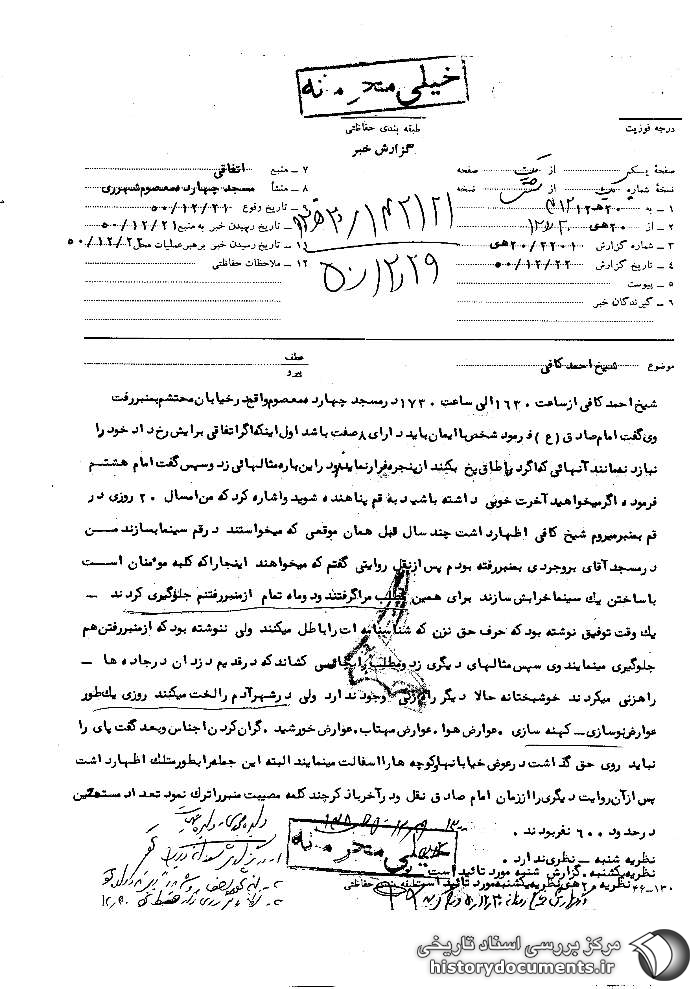 خیلی محرمانه
طبقه بندی حفاظتی
درجه فوریت
گزارش خبر
صفحهٔ یک از یک صفحه
نسخهٔ شماره از نسخه
۱ - به ۲۰هـ۱۲
۲ - از ۲۰هـ۳
۳ - شماره گزارش ۲۰/۲۲۰۱هـ۳
۴ - تاریخ گزارش ۵۰/۱۲/۲۲
۵ - پیوست
۶ - گیرندگان خبر
۷ - منبع اتفاقی
۸ - منشأ مسجد چهارده معصوم شهرری
۹ - تاریخ وقوع ۵۰/۱۲/۲۱
۱۰ - تاریخ رسیدن خبر به منبع ۵۰/۱۲/۲۱
۱۱ - تاریخ رسیدن خبر برهبر عملیات محل ۵۰/۱۲/۲۲
۱۲ - ملاحظات حفاظتی
۵۰/۱۲/۲۹
موضوع شیخ احمد کافی
عطف
پیرو
شیخ احمد کافی از ساعت ۱۶۳۰ الی ساعت ۱۷۳۰ در مسجد چهارده معصوم واقع در خیابان محتشم بمنبر رفت
وی گفت امام صادق (ع) فرمود شخص با ایمان باید دارای ۸ صفت باشد اول اینکه اگر اتفاقی برایش رخ داد خود را
نبازد نه مانند آنهائی که اگر در اطاق پخ بکنند از پنجره فرار نمایند و در این باره مثالهائی زد و سپس گفت امام هشتم
فرموده اگر میخواهید آخرت خوبی داشته باشید به قم پناهنده شوید و اشاره کرد که من امسال ۲۰ روزی در
قم بمنبر میروم شیخ کافی اظهار داشت چند سال قبل همان موقعی که میخواستند در قم سینما بسازند من
در مسجد آقای بروجردی بمنبر رفته بودم پس از نقل روایتی گفتم که میخواهند اینجا را که کلبه مومنان است
با ساختن یک سینما خرابش سازند برای همین مطلب مرا گرفتند و دو ماه تمام از منبر رفتنم جلوگیری کردند -
یک وقت توفیق نوشته بود که حرف حق نزن که شناسنامه ات را باطل میکنند ولی ننوشته بود که از منبر رفتن هم
جلوگیری مینمایند وی سپس مثالهای دیگری زد و مطلب را بجائی کشاند که در قدیم دزدان در جاده ها -
راهزنی میکردند خوشبختانه حالا دیگر راهزنی وجود ندارد ولی در شهر آدم را لخت میکنند روزی یک طور
عوارض نوسازی - کهنه سازی . عوارض هوا . عوارض مهتاب . عوارض خورشید . گران کردن اجناس و بعد گفت پای را
نباید روی حق گذاشت در عوض خیابانها و کوچه ها را اسفالت مینمایند البته این جمله را بطور متلک اظهار داشت
پس از آن روایت دیگری را از زمان امام صادق نقل و در آخر با ذکر چند کلمه مصیبت منبر را ترک نمود تعداد مستمعین
در حدود ۶۰۰ نفر بودند .
نظریه شنبه - نظری ندارد .
نظریه یکشنبه . گزارش شنبه مورد تائید است .
نظریه ۲۰هـ۳ نظریه یکشنبه مورد تائید است
طبقه بندی حفاظتی
خیلی محرمانه
۴۶-۱۳۰
مرکز بررسی اسناد تاریخی
historydocuments.ir